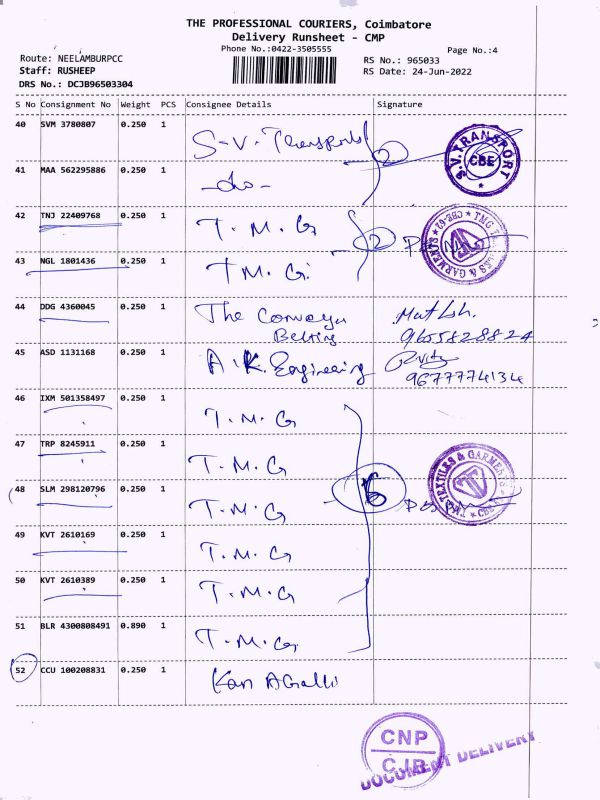 THE PROFESSIONAL COURIERS, Coimbatore
Delivery Runsheet - CMP
Phone No.:0422-3505555
Page No.:4
Route: NEELAMBURPCC
RS No.: 965033
Staff: RUSHEEP
RS Date: 24-Jun-2022
DRS No.: DCJB96503304
S No Consignment No Weight PCS Consignee Details Signature
40 SVM 3780807 0.250 1 S.V. Transports 2
S.V. TRANSPORT * CBE *
41 MAA 562295886 0.250 1 -do-
42 TNJ 22409768 0.250 1 T. M. G 2
TMG TEXTILES & GARMENTS * CBE-62 *
43 NGL 1801436 0.250 1 T M. G.
44 DDG 4360045 0.250 1 The Conveyor Belting
9655828824
45 ASD 1131168 0.250 1 A.K. Engineering
9677774134
46 IXM 501358497 0.250 1 T. M. G
47 TRP 8245911 0.250 1 T. M. G
48 SLM 298120796 0.250 1 T. M. G 6
TMG TEXTILES & GARMENTS * CBE-62 *
49 KVT 2610169 0.250 1 T. M. G
50 KVT 2610389 0.250 1 T. M. G
51 BLR 4300808491 0.890 1 T. M. G
52 CCU 100208831 0.250 1
CNP
CJB
DOCUMENT DELIVERY